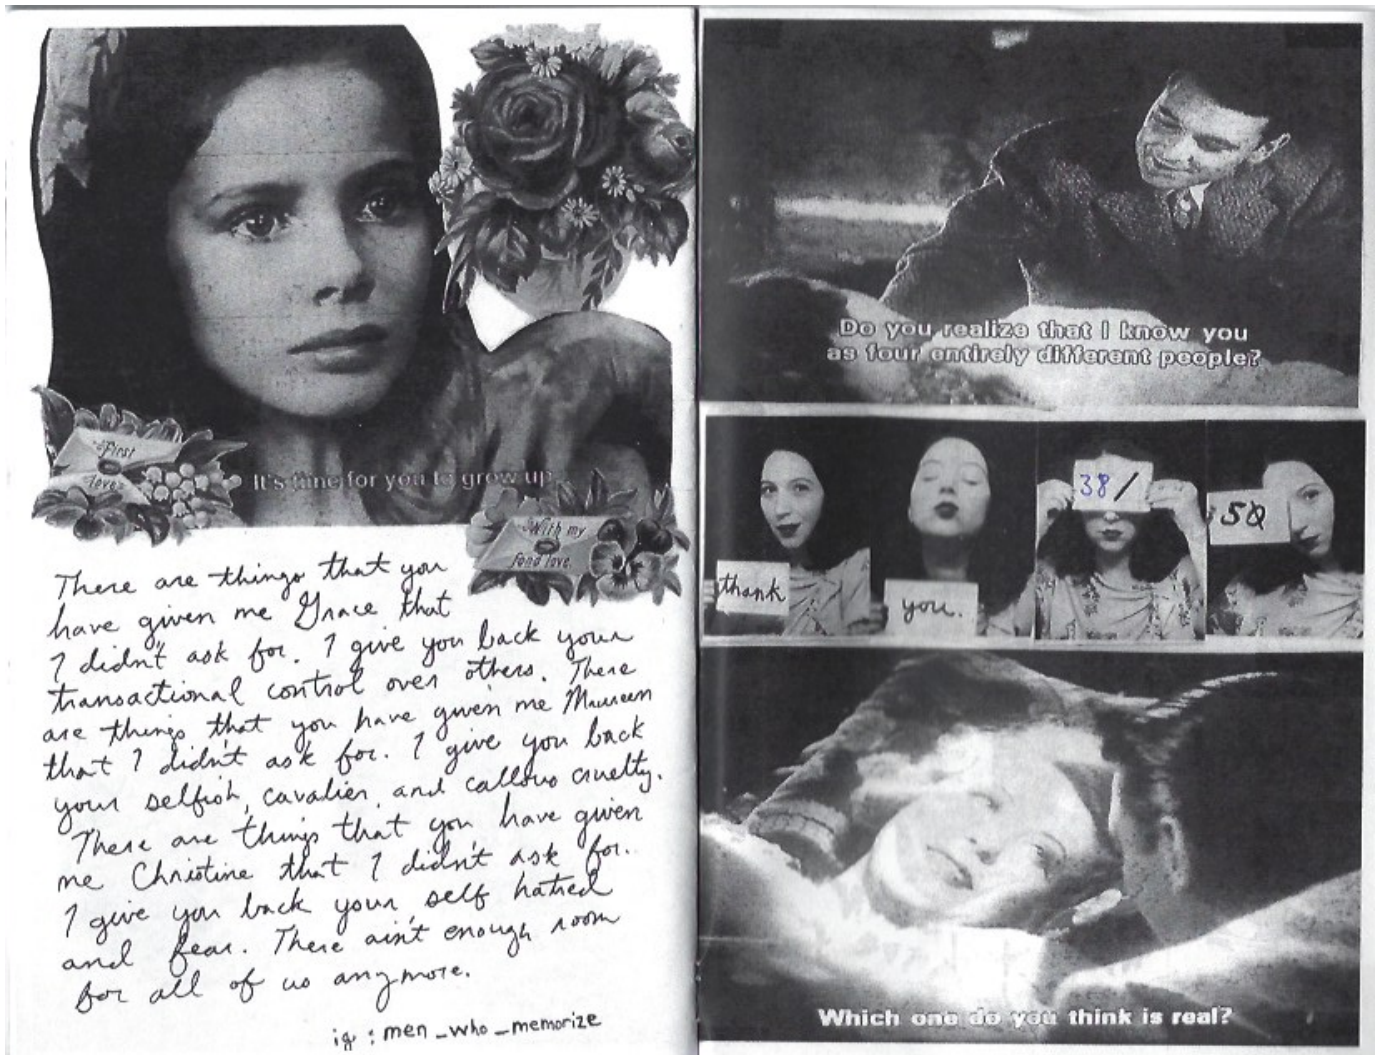 First
love
It's time for you to grow up
With my
fond love.
There are things that you
have given me Grace that
I didn't ask for. I give you back your
transactional control over others. There
are things that you have given me Maureen
that I didn't ask for. I give you back
your selfish, cavalier, and callous cruelty.
There are things that you have given
me Christine that I didn't ask for.
I give you back your self hatred
and fear. There ain't enough room
for all of us anymore.
ig : men_who_memorize
Do you realize that I know you
as four entirely different people?
thank
you.
38/
50
Which one do you think is real?